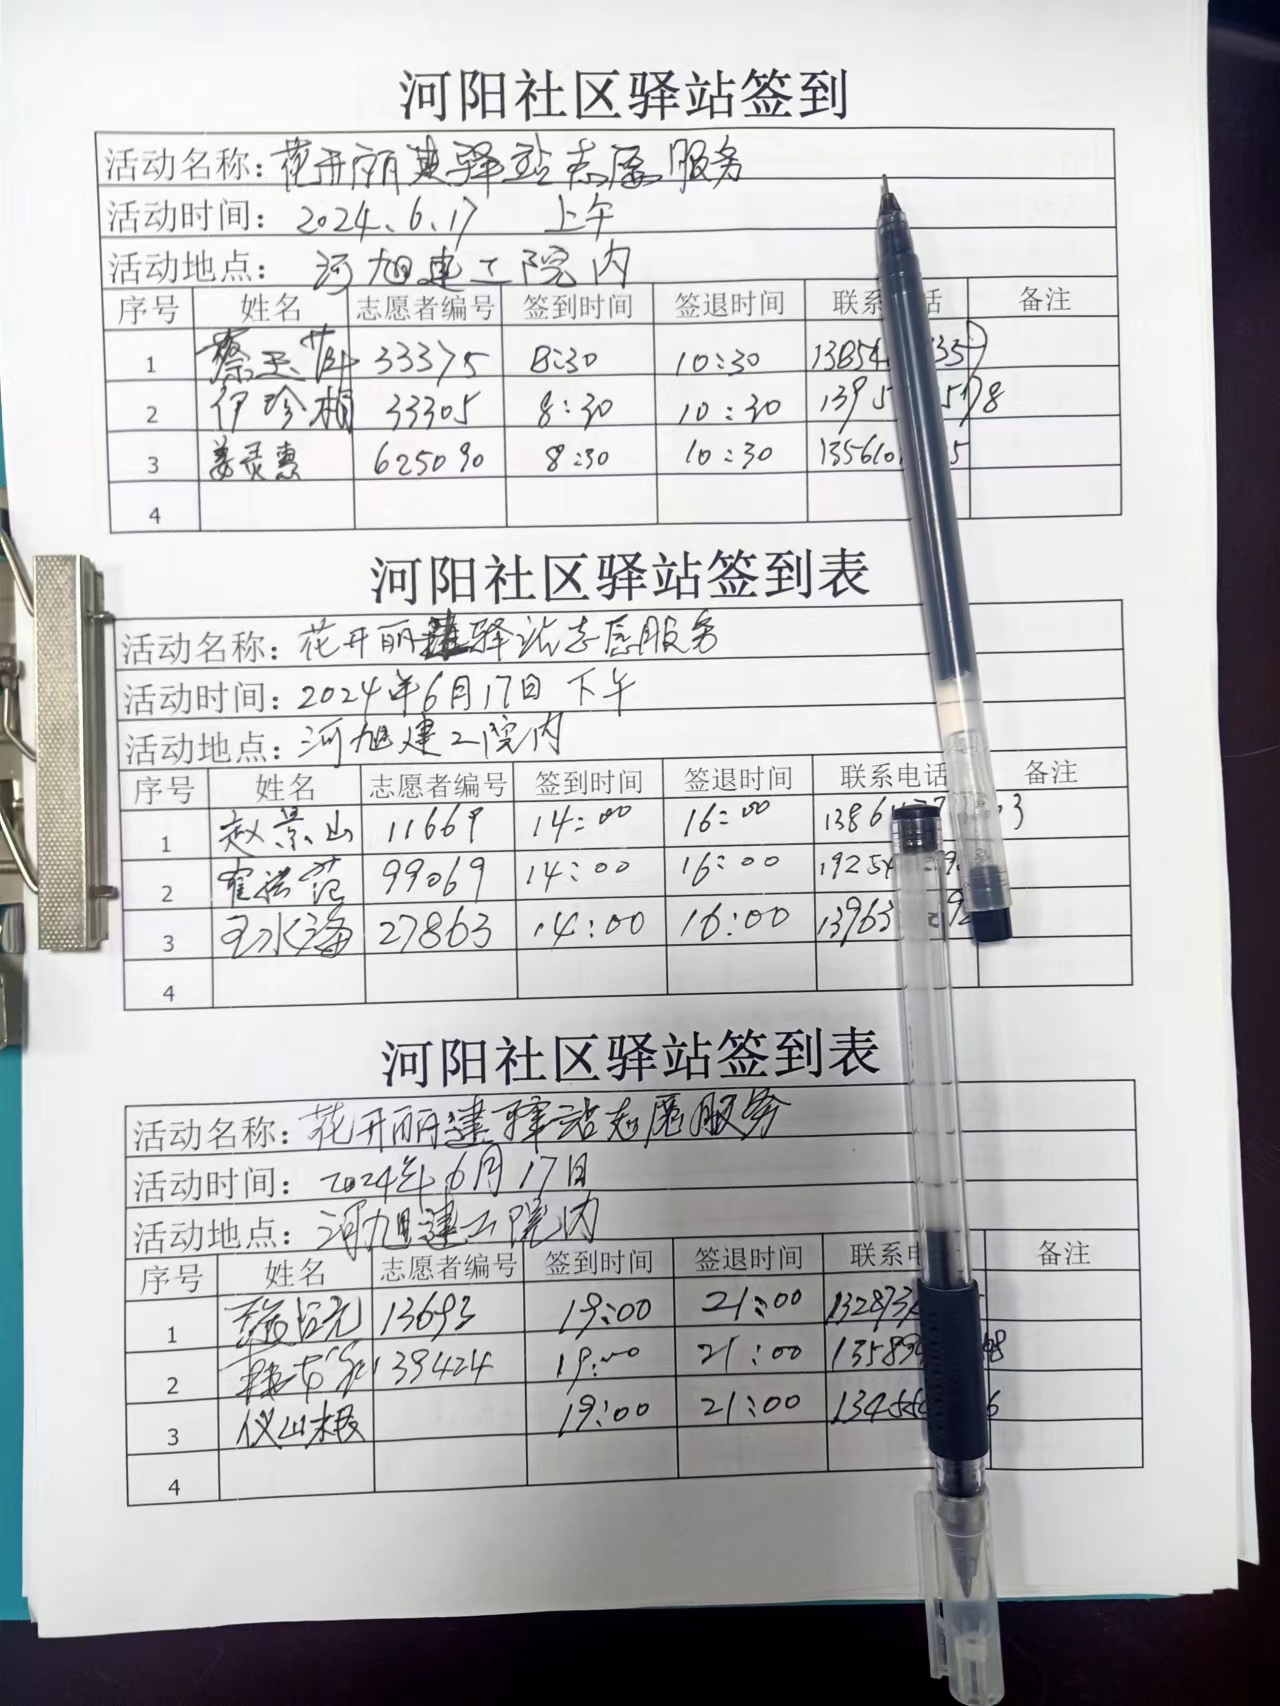 河阳社区驿站签到
活动名称：花开丽建驿站志愿服务
活动时间：2024.6.17 上午
活动地点：河旭建工院内
序号 姓名 志愿者编号 签到时间 签退时间 联系 话 备注
1 蔡玉 33375 8:30 10:30
2 伊珍楠 33305 8:30 10:30
3 姜灵惠 625090 8:30 10:30
4
河阳社区驿站签到表
活动名称：花开丽建驿站志愿服务
活动时间：2024年6月17日 下午
活动地点：河旭建工院内
序号 姓名 志愿者编号 签到时间 签退时间 联系电话 备注
1 赵景山 11669 14:00 16:00
2 99069 14:00 16:00
3 王水海 27863 14:00 16:00
4
河阳社区驿站签到表
活动名称：花开丽建驿站志愿服务
活动时间：2024年6月17日
活动地点：河旭建工院内
序号 姓名 志愿者编号 签到时间 签退时间 联系 备注
1 13693 19:00 21:00
2 39424 19:00 21:00
3 仪山根 19:00 21:00
4